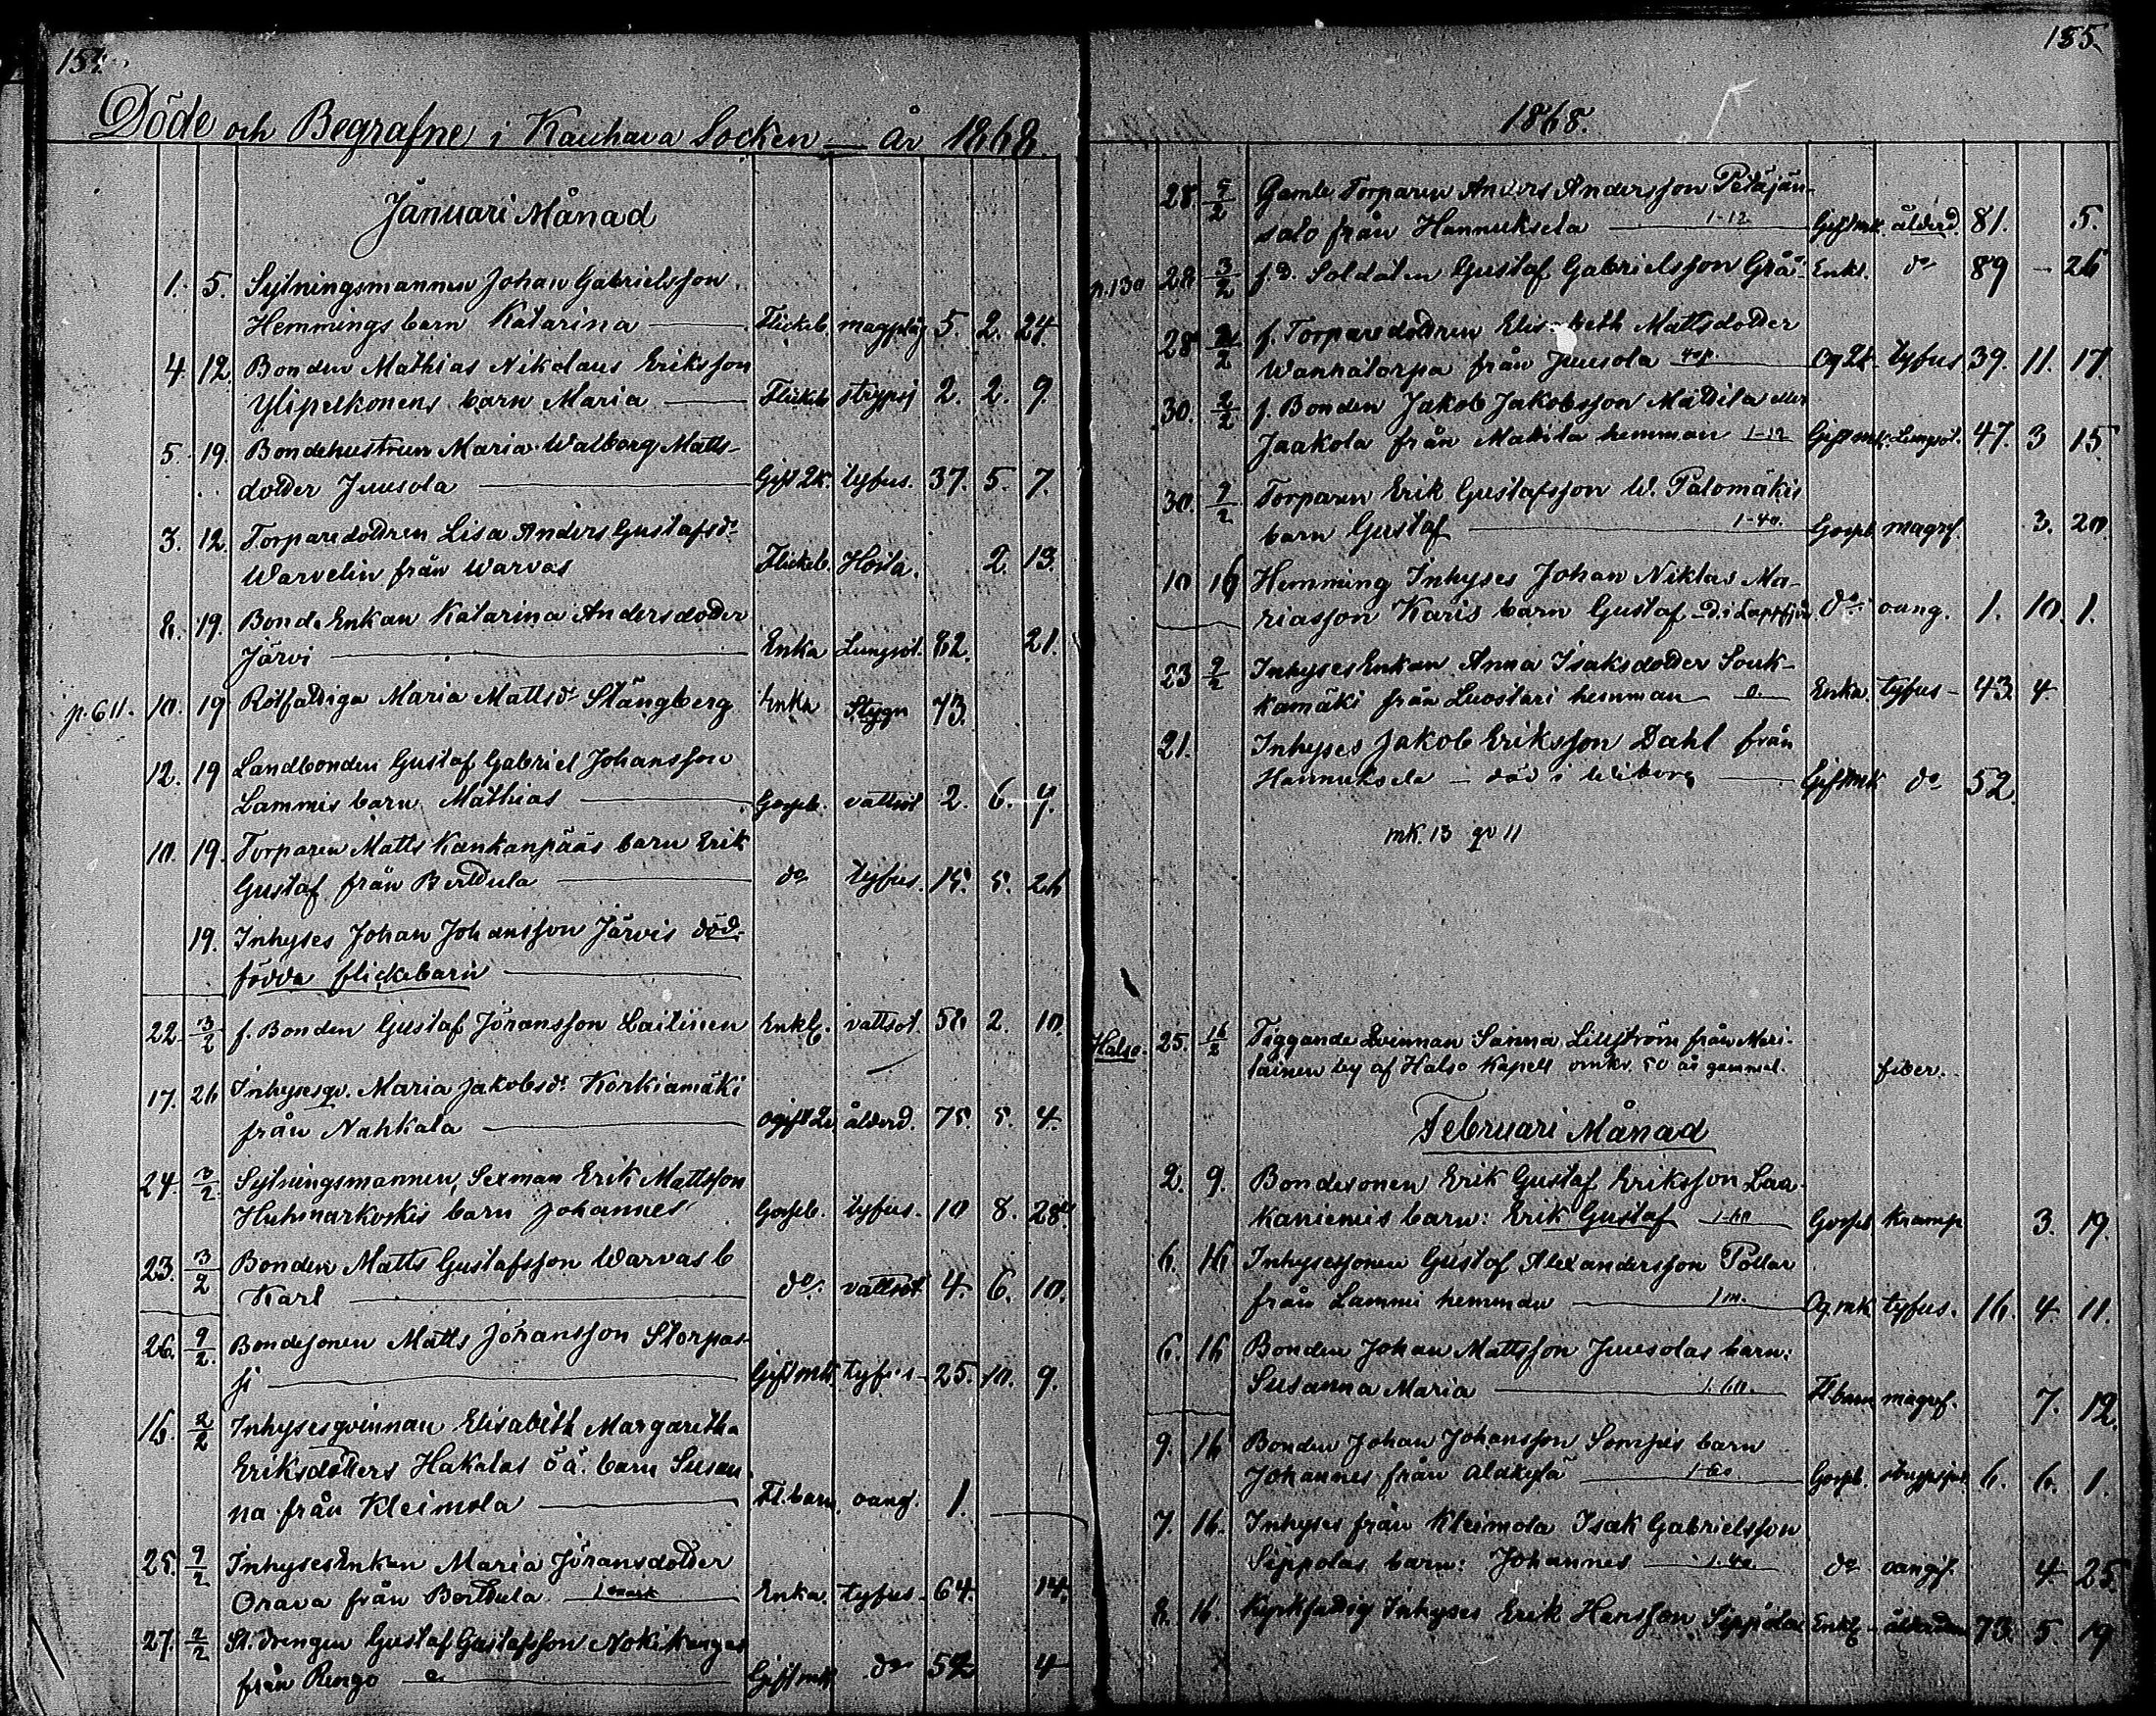 Döde och Begrafne i Kauhava Socken — År 1868.
Januari Månad
1. 5. Sytningsmannen Johan Gabrielsson
Hemmings barn Katarina — Flickeb. magplåg 5. 2. 24.
4. 12. Bonden Mathias Nikolaus Eriksson
Ylipelkonens barn Maria — Flickeb strypsj 2. 2. 9.
5. 19. Bondehustrun Maria Walborg Matts-
dotter Juusola — Gift 2k. tyfus. 37. 5. 7.
3. 12. Torparedottren Lisa Anders Gustafsd:r
Warvelin från Warvas Flickeb. Hosta. 2. 13.
8. 19. Bonde Enkan Katarina Andersdotter
Järvi — Enka Lungsot. 82. 21.
p. 611. 10. 19 Rotfattiga Maria Mattsd:r Stångberg Enka Stygn 73.
12. 19 Landbonden Gustaf Gabriel Johansson
Lammis barn Mathias — Gosseb. vattsot 2. 6. 4.
10. 19. Torparen Matts Kankanpääs barn Erik
Gustaf från Berttula — do tyfus. 15. 5. 26
19. Inhyses Johan Johansson Järvis död-
födda flickebarn —
22. 3/2 f. Bonden Gustaf Jöransson Laitinen Enkl. vattsot. 58 2. 10.
17. 26 Inhysesqv. Maria Jakobsd:r Korkiamäki
från Nahkala — ogift 2k. ålderd. 75. 5. 4.
24. 3/2 Sytningsmannen, Sexman Erik Mattsson
Huhmarkoskis barn Johannes Gosseb. tyfus. 10 8. 28
23. 3/2 Bonden Matts Gustafsson Warvas b
Karl — do. vattsot 4. 6. 10.
26. 9/2. Bondesonen Matts Jöransson Storpas-
si — Gift mk. tyfus 25. 10. 9.
16. 2/2 Inhysesqvinnan Elisabeth Margaretha
Eriksdotters Hakalas o ä. barn Susan
na från Kleimola — Fl. barn oang. 1.
25. 9/2 InhysesEnkan Maria Jöransdotter
Orava från Berttula 1 mark Enka. tyfus. 64. 14.
27. 2/2 St. drengen Gustaf Gustafsson Nokikangas
från Rengo — Gift mk do 52 4
155.
1868.
28 9/2 Gamle Torparen Anders Andersson Petäjän-
salo från Hannuksela 1-12 Gift mk. ålderd. 81. 5.
p. 130 28 3/2 f.d. Soldaten Gustaf Gabrielsson Grå Enkl. do 89 — 26
28 2/2 f. Torparedottren Elisabeth Mattsdotter
Wanhatorpa från Juusola Og 2k tyfus 39. 11. 17.
30. 2/2 f. Bonden Jakob Jakobsson Mattila eller
Jaakola från Mattila hemman 1-12 Gift mk. Lungsot. 47. 3 15.
30. 9/2 Torparen Erik Gustafsson W. Palomäkis
barn Gustaf 1-40. Gosseb magref. 3. 20.
10 16 Hemming Inhyses Johan Niklas Ma-
riasson Karis barn Gustaf D. i Lappfjärd do oang. 1. 10. 1.
23 9/2 InhysesEnkan Anna Isaksdotter Souk-
kamäki från Luostari hemman Enka. tyfus — 43. 4.
21. Inhyses Jakob Eriksson Dahl från
Hannuksela — död i Wiborg — Gift mk do 52.
mk. 13 qv 11
Halso. 25. 16/2 Tiggande Qvinnan Sanna Lillström från Mari-
lainen by af Halso Kapell omkr. 50 år gammal. feber.
Februari Månad
2. 9. Bondesonen Erik Gustaf Eriksson Laa-
kaniemis barn: Erik Gustaf 1-60 Gosseb kramp 3. 19.
6. 16 Inhysessonen Gustaf Alexandersson Pollar
från Lammi hemman 1 m. Og. mk tyfus. 16. 4. 11.
6. 16 Bonden Johan Mattsson Juusolas barn:
Susanna Maria 1.60. Fl. barn magref. 7. 12.
9. 16 Bonden Johan Johansson Sompis barn
Johannes från Alakylä 1-60 Gosseb. strypsjuk. 6. 6. 1.
7. 16. Inhyses från Kleimola Isak Gabrielsson
Sippolas barn: Johannes 1-40 do oangif. 4 25.
8. 16. Kyrkfattig Inhyses Erik Hansson Sippola Enkl. ålderdom 73. 5. 19